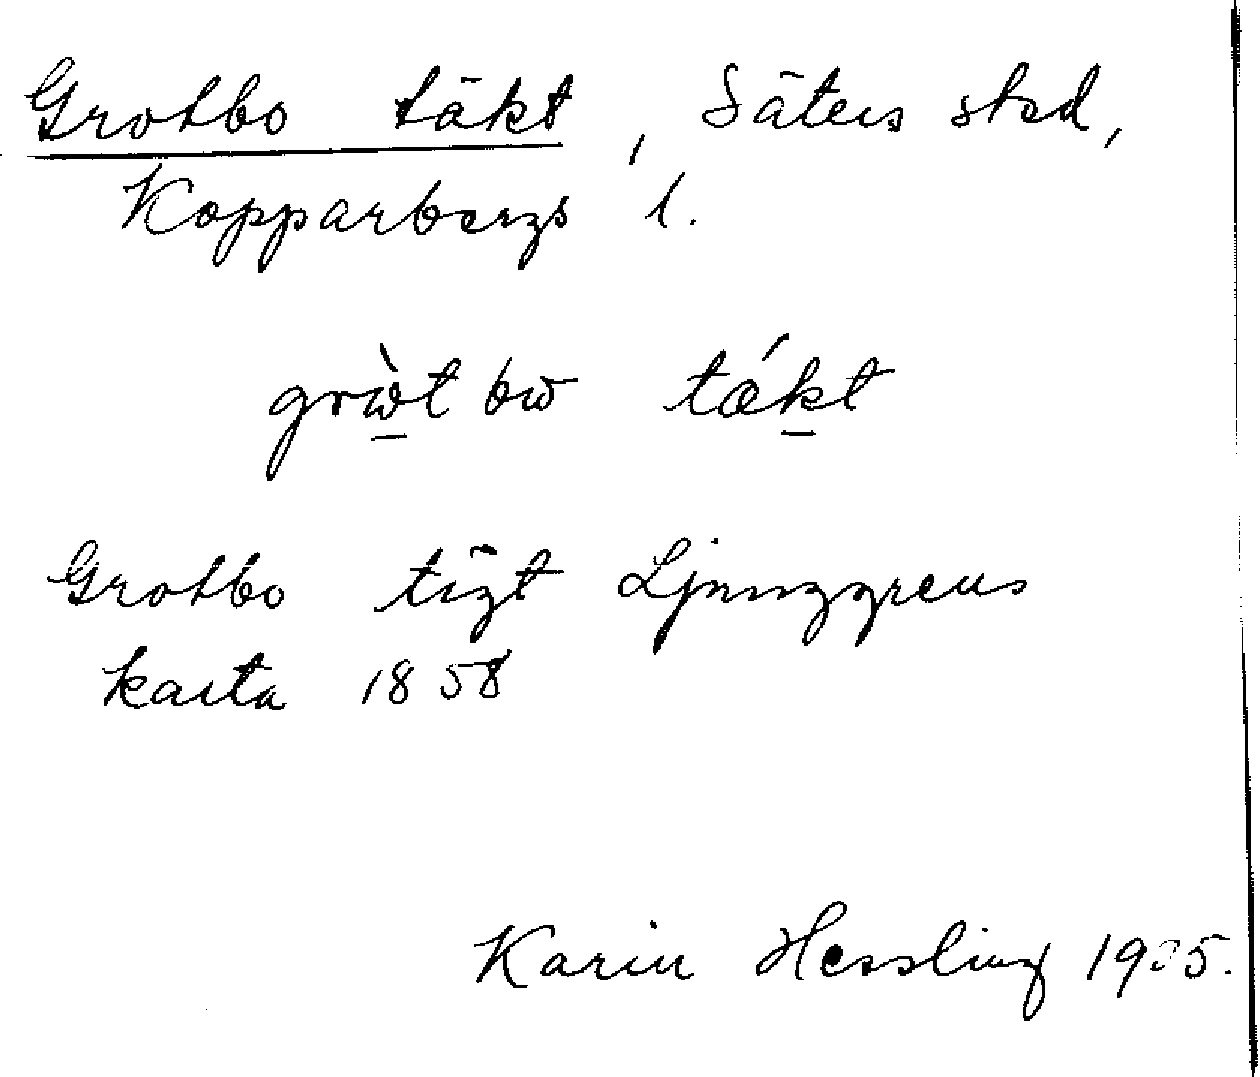 Grotbo täkt, Säters sksd,
Kopparbergs l.
grὼt bω tǽkt
Grotbo tägt Ljunggrens
karta 1858
Karin Hessling 1935.